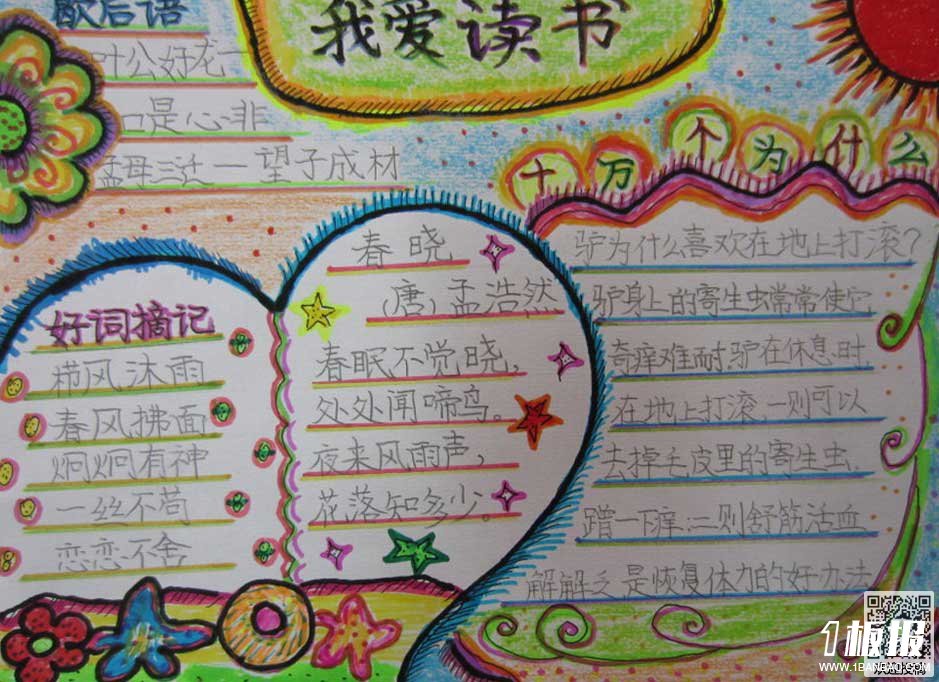 我爱读书
歇后语
叶公好龙一
口是心非
孟母三迁一望子成材
十万个为什么
春晓
(唐)孟浩然
春眠不觉晓,
处处闻啼鸟。
夜来风雨声,
花落知多少。
好词摘记
栉风沐雨
春风拂面
炯炯有神
一丝不苟
恋恋不舍
驴为什么喜欢在地上打滚?
驴身上的寄生虫常常使它
奇痒难耐,驴在休息时
在地上打滚,一则可以
去掉毛皮里的寄生虫、
蹭一下痒;二则舒筋活血
解解乏,是恢复体力的好办法
1板报
WWW.1BANBAO.COM